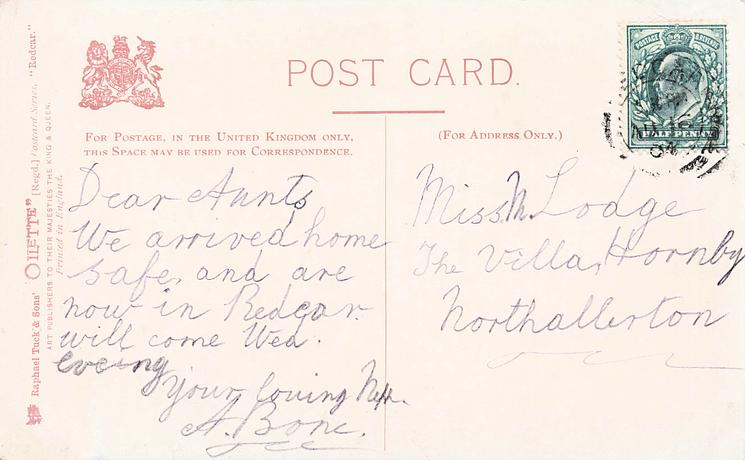 POST CARD.
FOR POSTAGE, IN THE UNITED KINGDOM ONLY,
THIS SPACE MAY BE USED FOR CORRESPONDENCE.
(FOR ADDRESS ONLY.)
Dear Aunts
We arrived home
safe, and are
now in Redcar.
will come Wed.
eveing
your loving Neph.
A. Bone.
Miss M. Lodge
The Villa, Hornby
Northallerton
Raphael Tuck & Sons' "OILETTE" [Regd.] Postcard Series. "Redcar."
ART PUBLISHERS TO THEIR MAJESTIES THE KING & QUEEN.
Printed in England.
POSTAGE & REVENUE
HALF PENNY